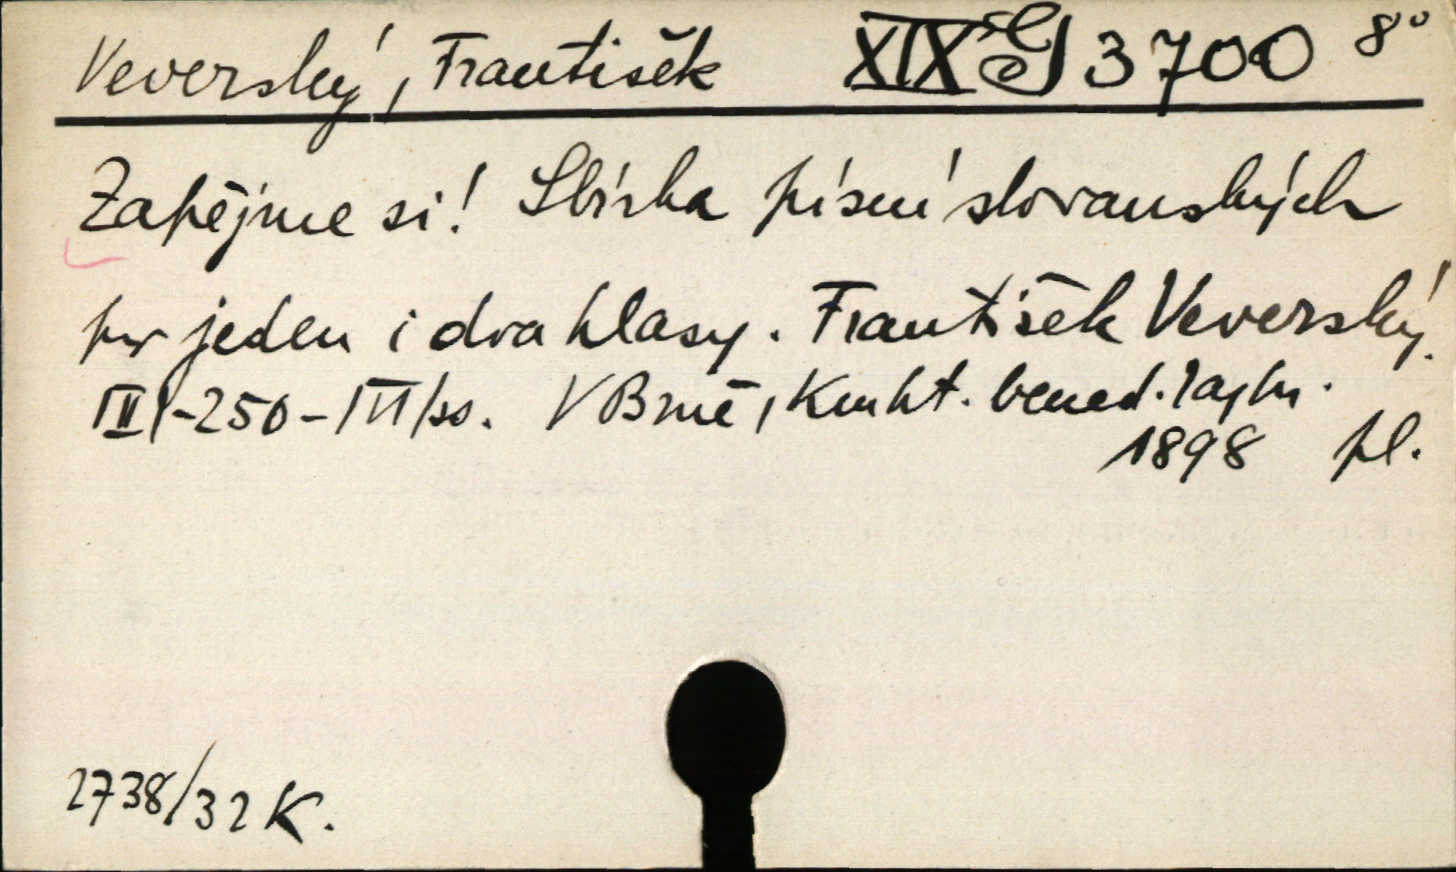 Veverský, František XIX G 3700 8°
Zapějme si! Sbírka písní slovanských
pro jeden i dva hlasy. František Veverský.
V Brně, Kniht. bened. rajhr.
1898 pl.
2738/32 K.